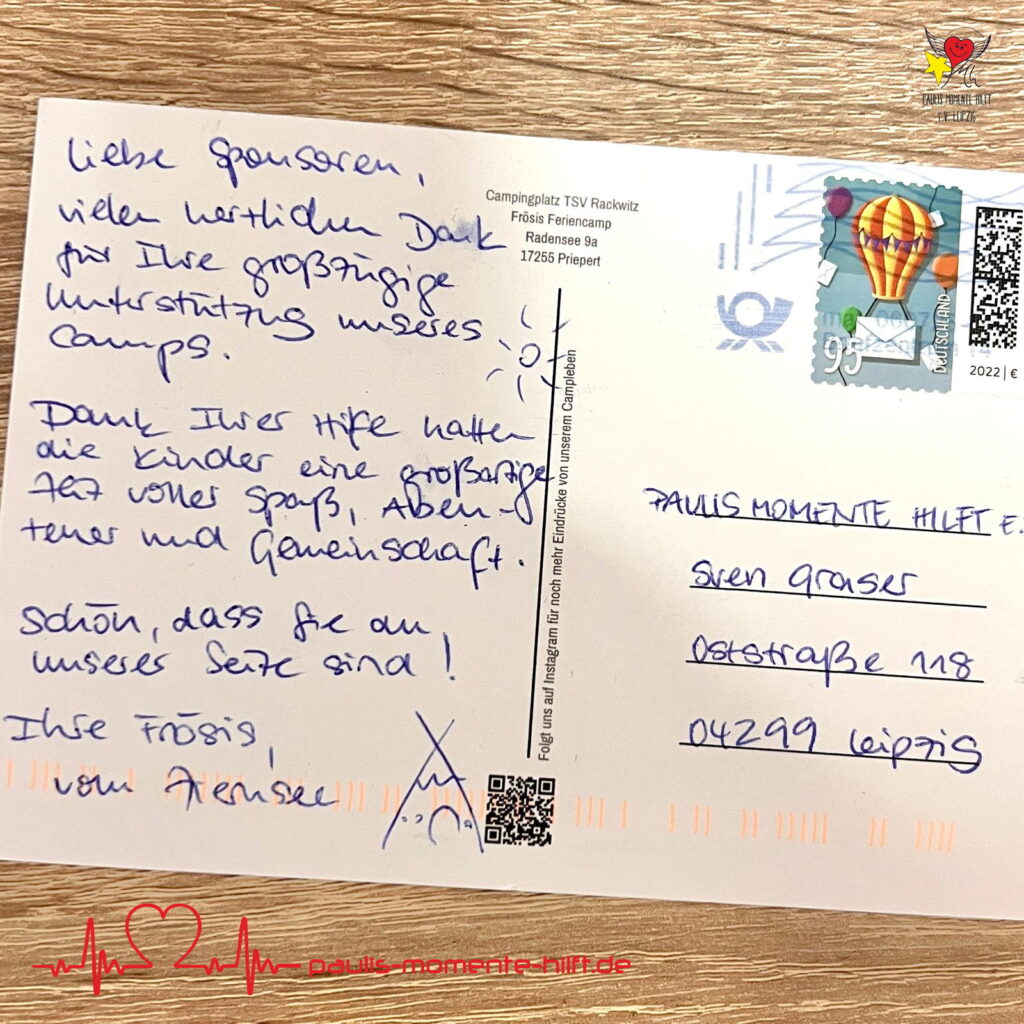 PAULIS MOMENTE HILFT
E.V. LEIPZIG
Liebe Sponsoren,
vielen herzlichen Dank
für Ihre großzügige
Unterstützung unseres
Camps.
Dank Ihrer Hilfe hatten
die Kinder eine großartige
Zeit voller Spaß, Aben-
teuer und Gemeinschaft.
Schön, dass Sie an
unserer Seite sind!
Ihre Frösis,
vom
Campingplatz TSV Rackwitz
Frösis Feriencamp
Radensee 9a
17255 Priepert
Folgt uns auf Instagram für noch mehr Eindrücke von unserem Campleben
DEUTSCHLAND
95
2022 | €
PAULIS MOMENTE HILFT E.
Sven Graser
Oststraße 118
04299 Leipzig
paulis-momente-hilft.de